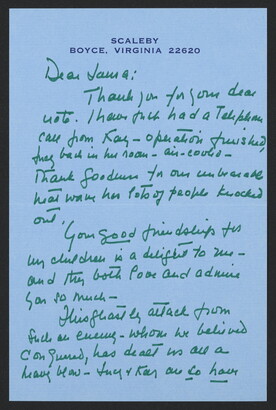 SCALEBY
BOYCE, VIRGINIA 22620
Dear Laura:
Thank you for your dear
note. I have just had a telephone
call from Kay - operation finished,
back in his room - air-cooled -
Thank Goodness for our unbearable
heat wave has lots of people knocked
out!
Your good friendship for
my children is a delight to me -
and they both love and admire
you so much -
This ghastly attack from
such an enemy - whom we believed
conquered, has dealt us all a
heavy blow - & Kay are so have